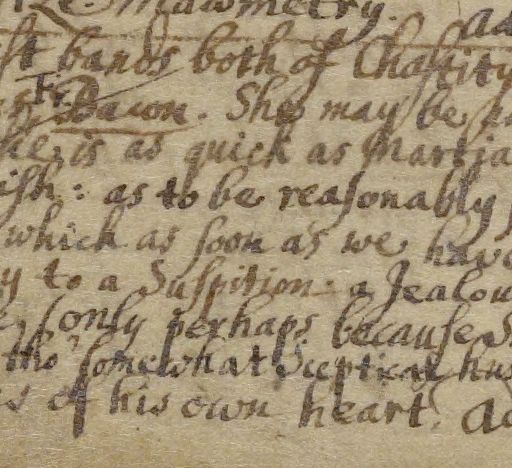 Mawmetry. Ad
ſt bands both of Chaſtity
Fr. Bacon. She may be
he is as quick as Martia
iſh: as to be reaſonably
which as ſoon as we have
y to a Suſpition: a Jealou
only perhaps becauſe S
tho' ſomewhat Sceptical hus
s of his own heart. Ad